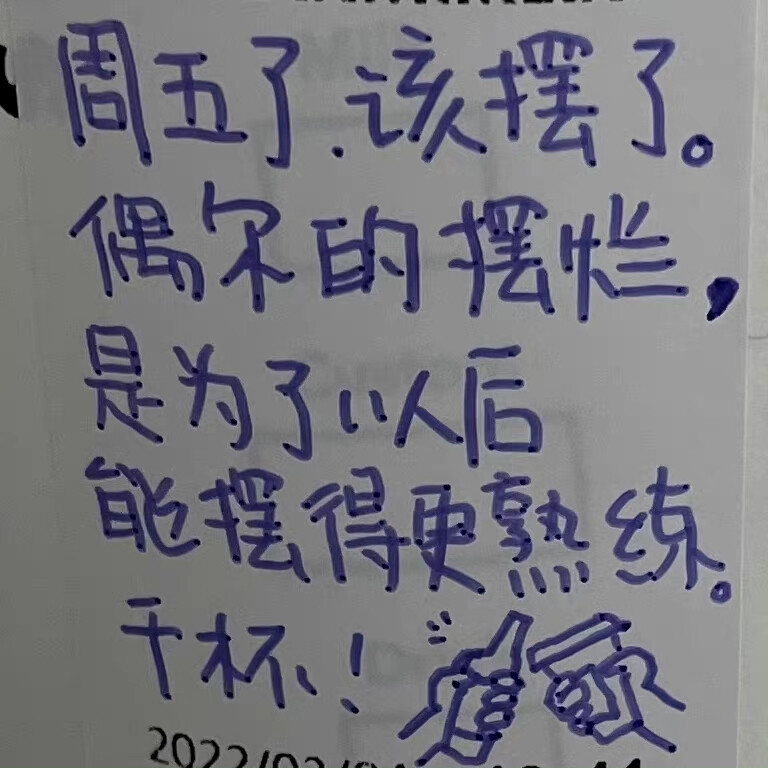 周五了.该摆了。
偶尔的摆烂,
是为了以后
能摆得更熟练。
干杯!